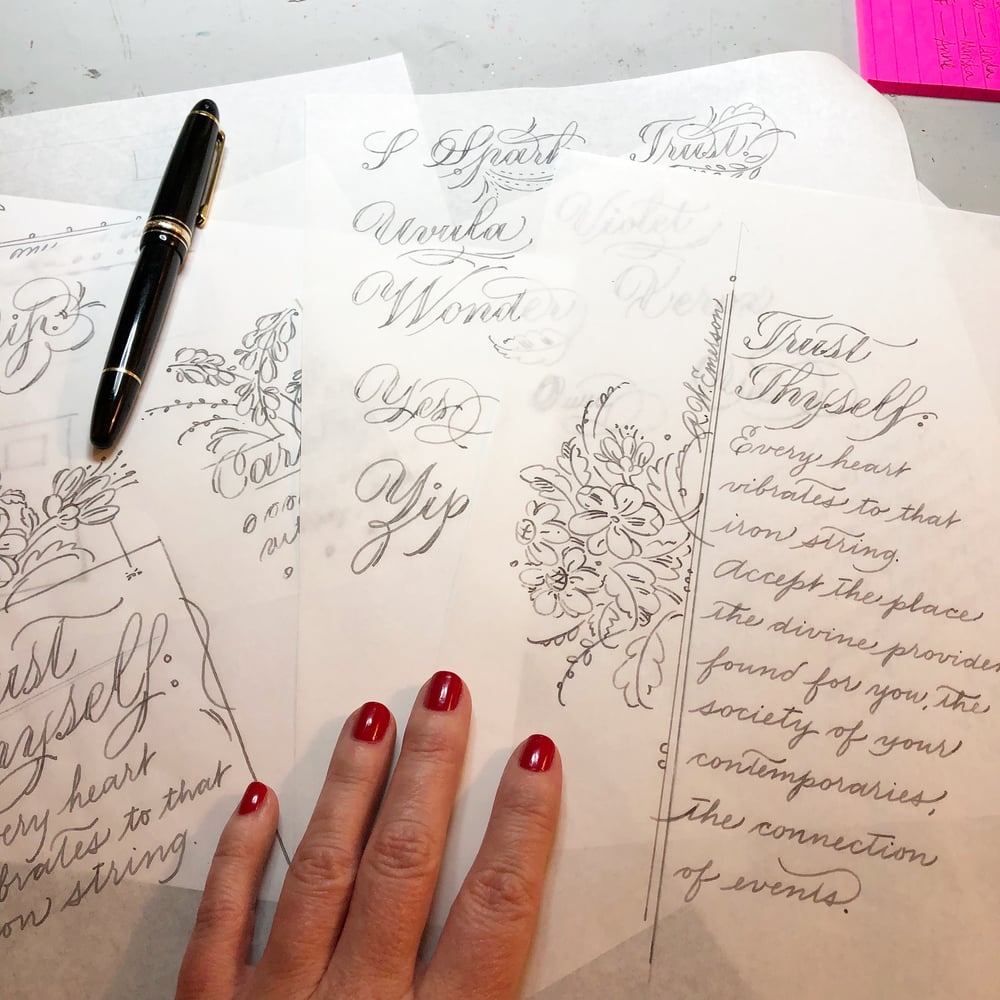 S Spark
Trust.
Uvula
Violet
Wonder
Yes
Yip
R.W. Emerson
Trust
Thyself:
Every heart
vibrates to that
iron string.
Accept the place
the divine providen
found for you, the
society of your
contemporaries,
the connection
of events.
Car
ust
hyself:
ery heart
brates to that
on string.